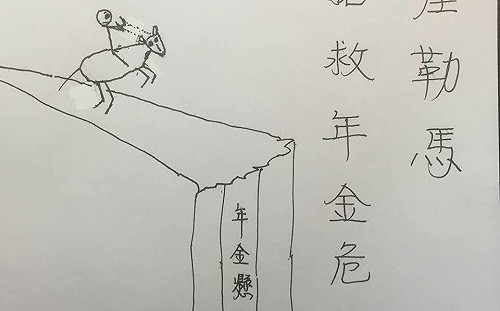 勒馬
救年金危
年金懸